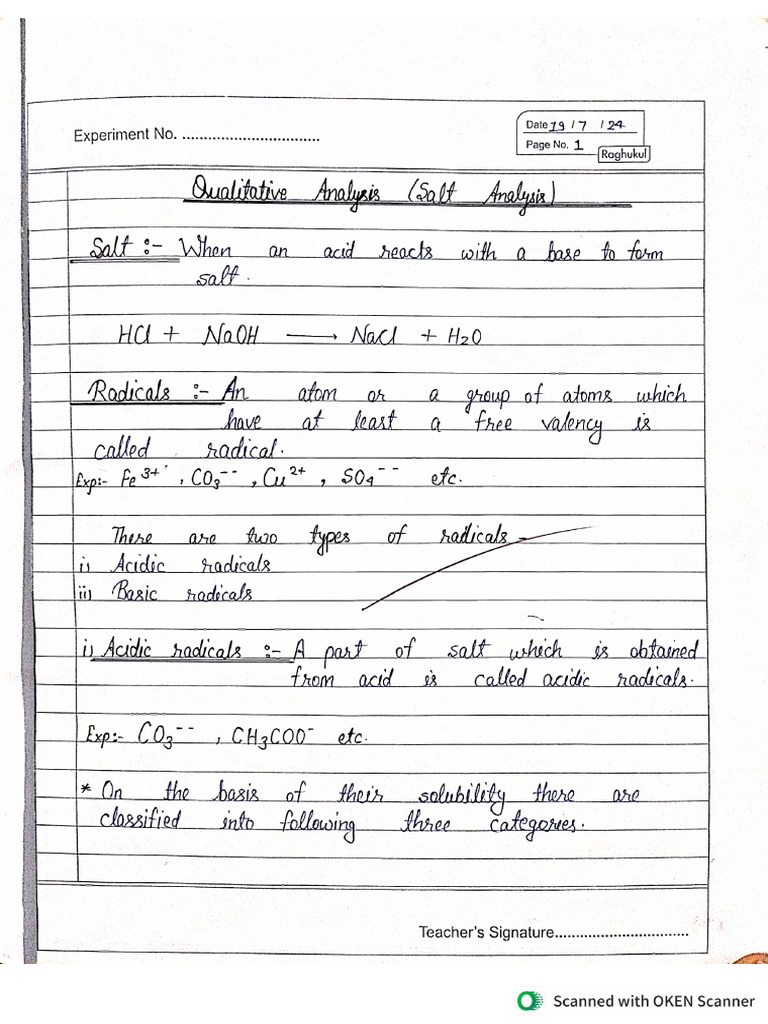 Experiment No. ................................
Date 19 / 7 / 24
Page No. 1
Raghukul
Qualitative Analysis (Salt Analysis)
Salt :- When an acid reacts with a base to form
salt.
HCl + NaOH ⟶ NaCl + H2O
Radicals :- An atom or a group of atoms which
have at least a free valency is
called radical.
Exp:- Fe³⁺, CO₃⁻⁻, Cu²⁺, SO₄⁻⁻ etc.
There are two types of radicals -
i) Acidic radicals
ii) Basic radicals
i) Acidic radicals :- A part of salt which is obtained
from acid is called acidic radicals.
Exp:- CO₃⁻⁻, CH₃COO⁻ etc.
* On the basis of their solubility there are
classified into following three categories.
Teacher's Signature................................
Scanned with OKEN Scanner